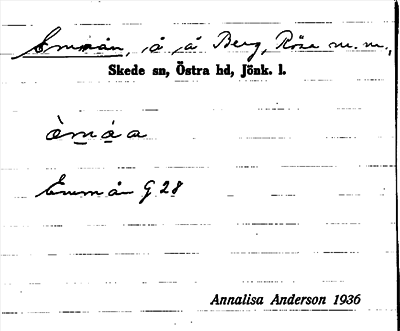 Emmån, å å Berg, Rösa m. m.,
Skede sn, Östra hd, Jönk. l.
èmåa
Emmån G 28
Annalisa Anderson 1936